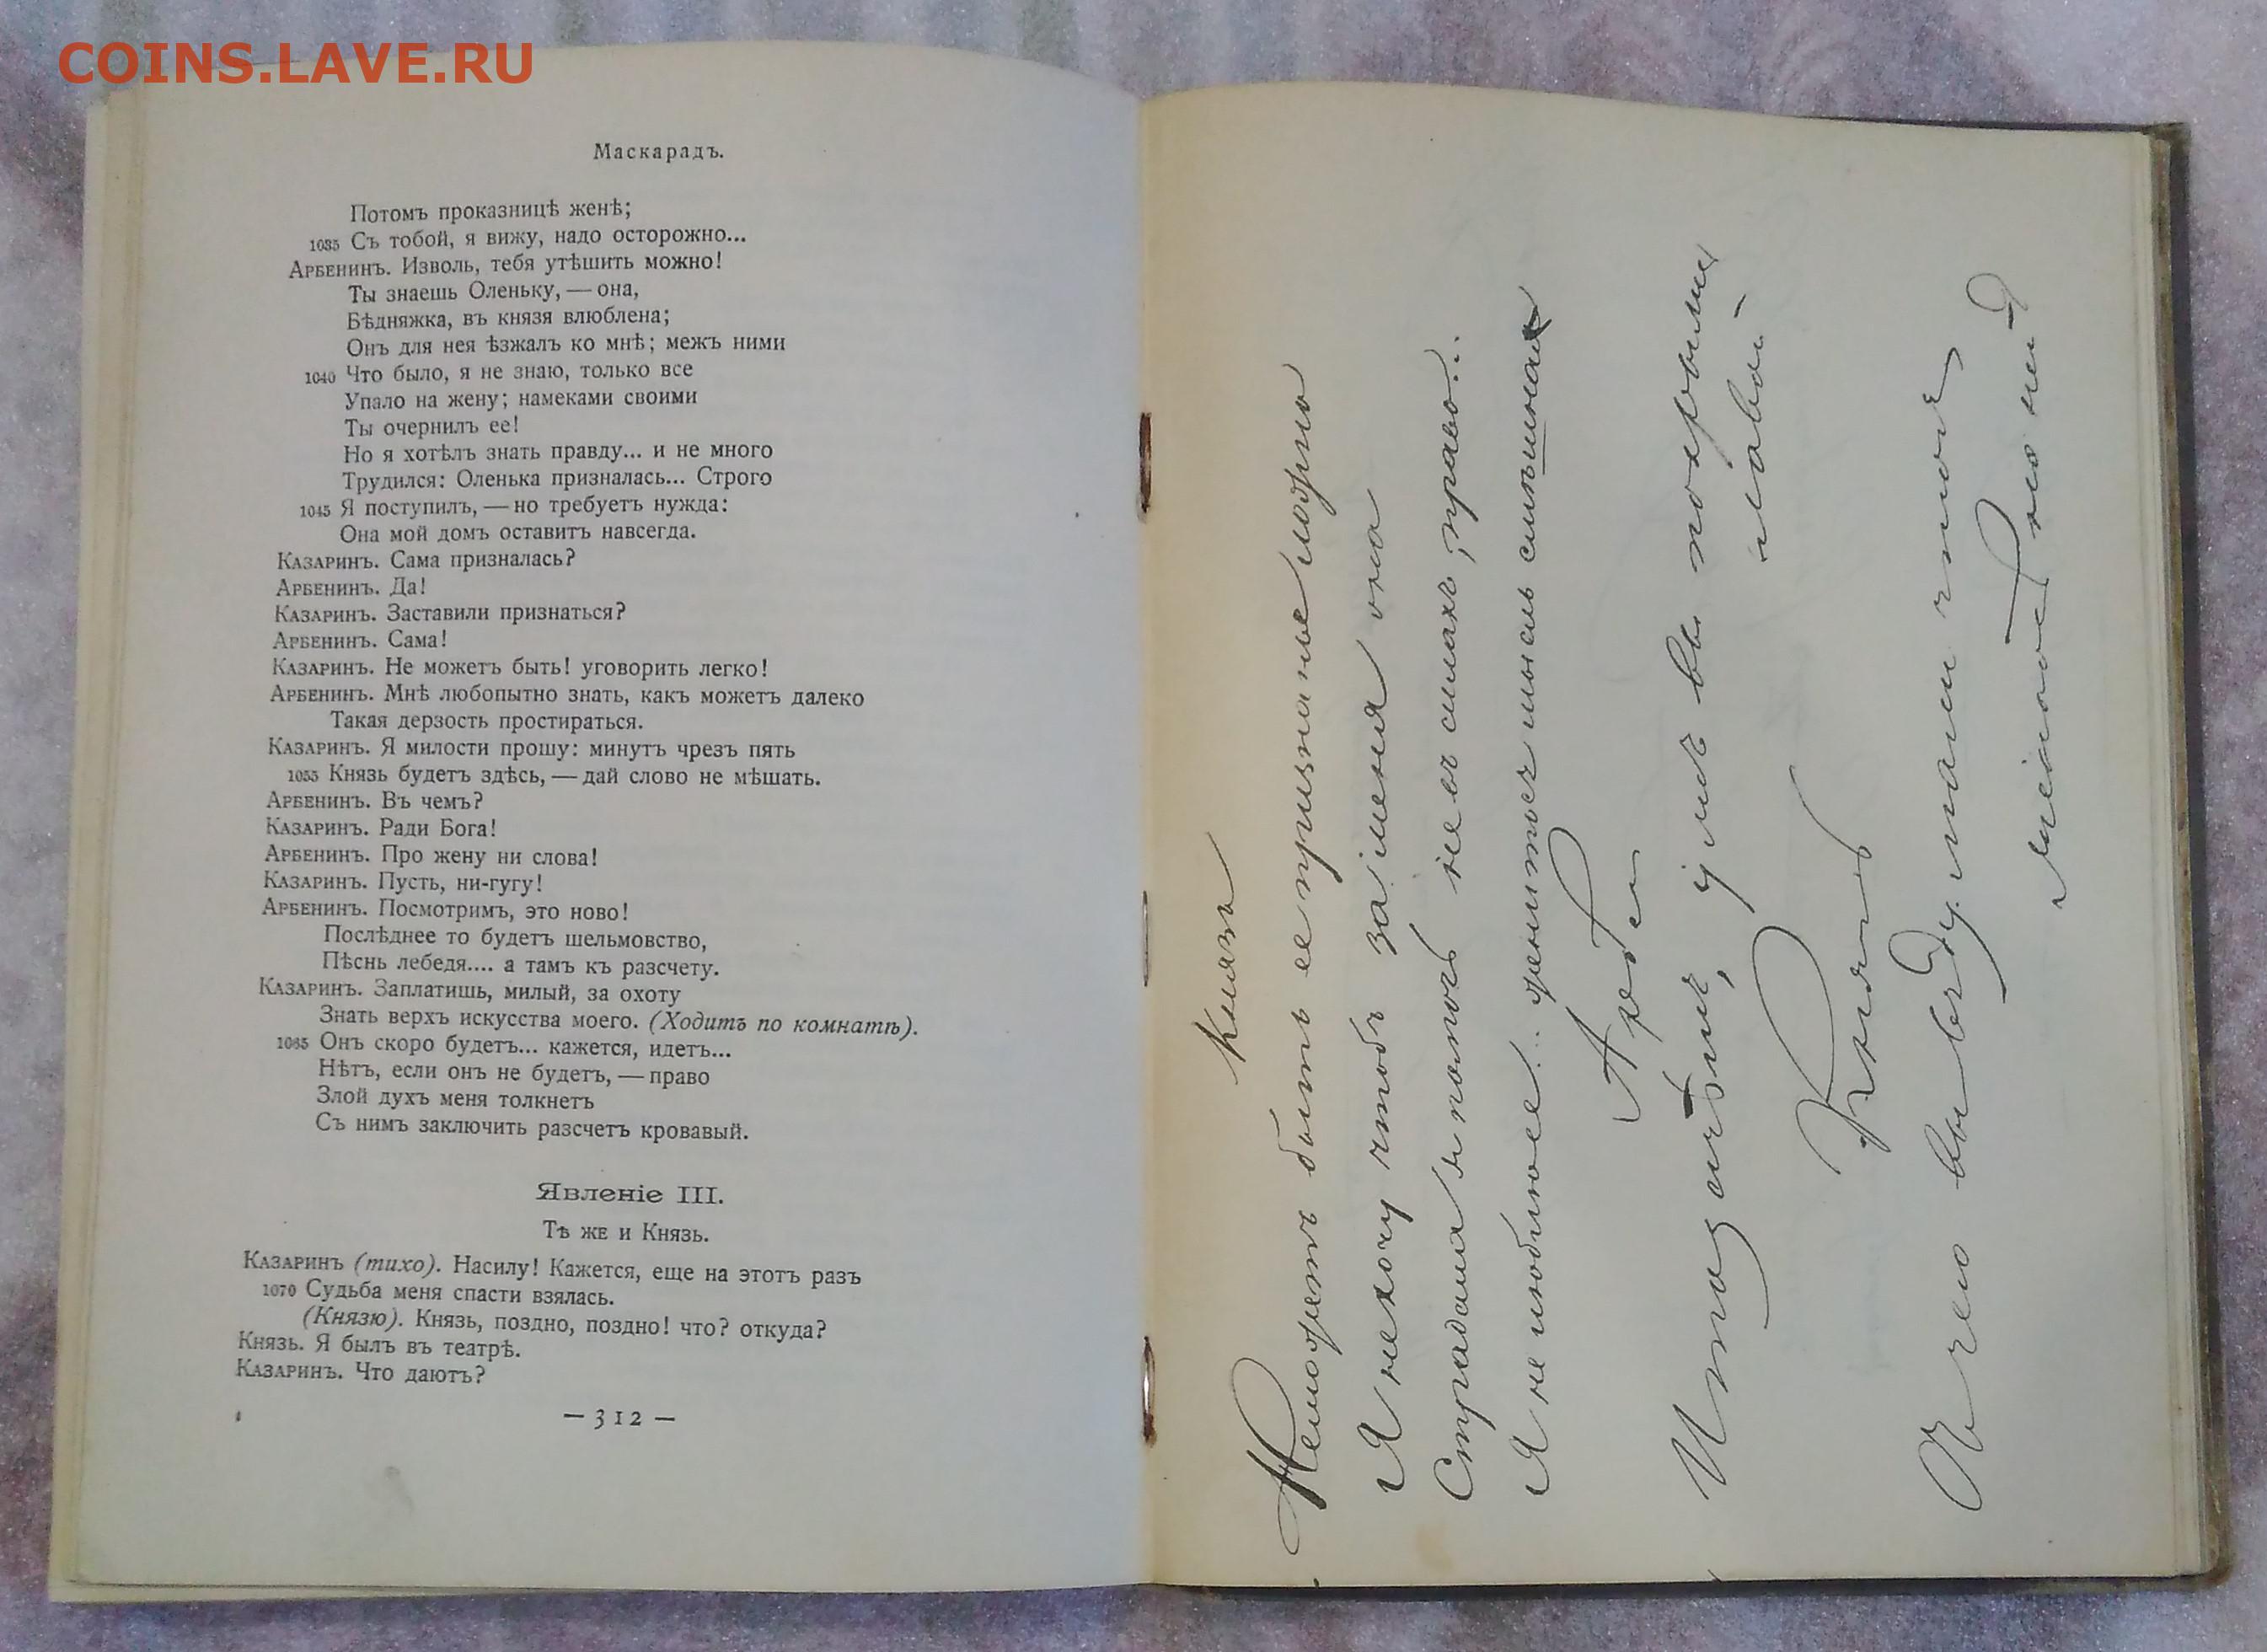 COINS.LAVE.RU
Маскарадъ.
Потомъ проказницѣ женѣ;
1035 Съ тобой, я вижу, надо осторожно...
Арбенинъ. Изволь, тебя утѣшить можно!
Ты знаешь Оленьку, — она,
Бѣдняжка, въ князя влюблена;
Онъ для нея ѣзжалъ ко мнѣ; межъ ними
1040 Что было, я не знаю, только все
Упало на жену; намеками своими
Ты очернилъ ее!
Но я хотѣлъ знать правду... и не много
Трудился: Оленька призналась... Строго
1045 Я поступилъ, — но требуетъ нужда:
Она мой домъ оставитъ навсегда.
Казаринъ. Сама призналась?
Арбенинъ. Да!
Казаринъ. Заставили признаться?
Арбенинъ. Сама!
Казаринъ. Не можетъ быть! уговорить легко!
Арбенинъ. Мнѣ любопытно знать, какъ можетъ далеко
Такая дерзость простираться.
Казаринъ. Я милости прошу: минутъ чрезъ пять
1055 Князь будетъ здѣсь, — дай слово не мѣшать.
Арбенинъ. Въ чемъ?
Казаринъ. Ради Бога!
Арбенинъ. Про жену ни слова!
Казаринъ. Пусть, ни-гугу!
Арбенинъ. Посмотримъ, это ново!
Послѣднее то будетъ шельмовство,
Пѣснь лебедя.... а тамъ къ разсчету.
Казаринъ. Заплатишь, милый, за охоту
Знать верхъ искусства моего. (Ходитъ по комнатѣ).
1065 Онъ скоро будетъ... кажется, идетъ...
Нѣтъ, если онъ не будетъ, — право
Злой духъ меня толкнетъ
Съ нимъ заключить разсчетъ кровавый.
Явленіе III.
Тѣ же и Князь.
Казаринъ (тихо). Насилу! Кажется, еще на этотъ разъ
1070 Судьба меня спасти взялась.
(Князю). Князь, поздно, поздно! что? откуда?
Князь. Я былъ въ театрѣ.
Казаринъ. Что даютъ?
— 312 —
Князь
Неможетъ быть ее признанье ложно
Я нехочу чтобъ за меня она
Страдала я помочь не въ силахъ, право...
Я не люблю ее!.. женитьс мысль смѣшная
Арбен
Итаз у мъ вы покрыли
славой
Князь
Я чего вы